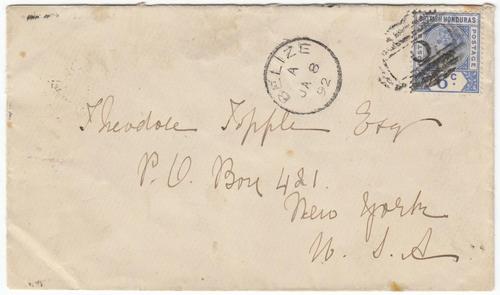 BRITISH HONDURAS
POSTAGE
6 C.
BELIZE
A
JA 8
92
Theodore Topple Esq
P.O. Box 421.
New York
U.S.A